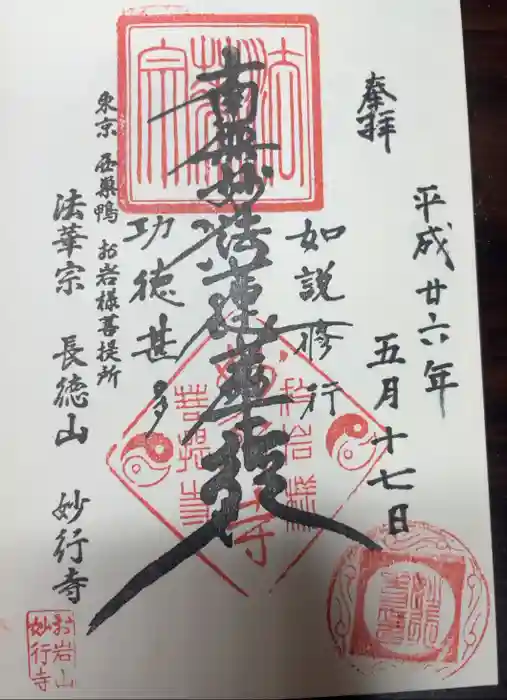 奉拝
平成廿六年
五月十七日
如説修行
南無妙法蓮華経
功徳甚多
東京 西巣鴨 お岩様菩提所
法華宗 長徳山 妙行寺
法華宗
お岩様
菩提寺
お岩山
妙行寺